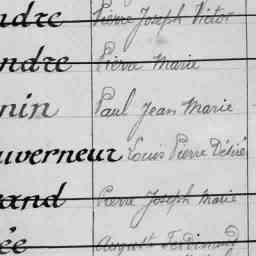 ndre Pierre Joseph Victor
ndre Pierre Marie
nin Paul Jean Marie
uverneur Louis Pierre Désiré
rand Pierre Joseph Marie
ée August Ferdinand